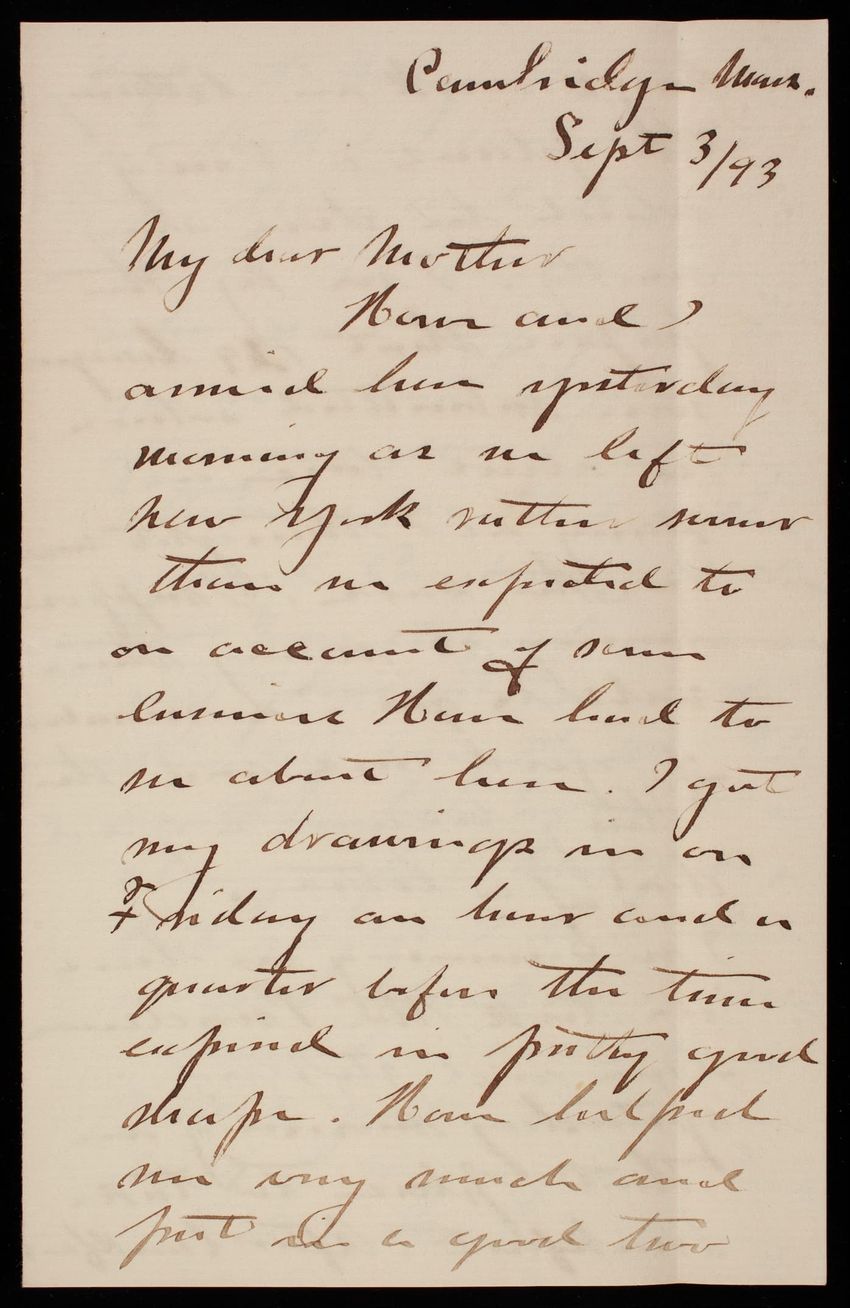 Cambridge Mass.
Sept 3/93
My dear Mother
and I
arrived here yesterday
morning as we left
New York rather sooner
than we expected to
on account of some
business had to
see about here. I got
my drawings in on
Friday an hour and a
quarter before the time
expired in pretty good
shape. helped
me very much and
put in a good two